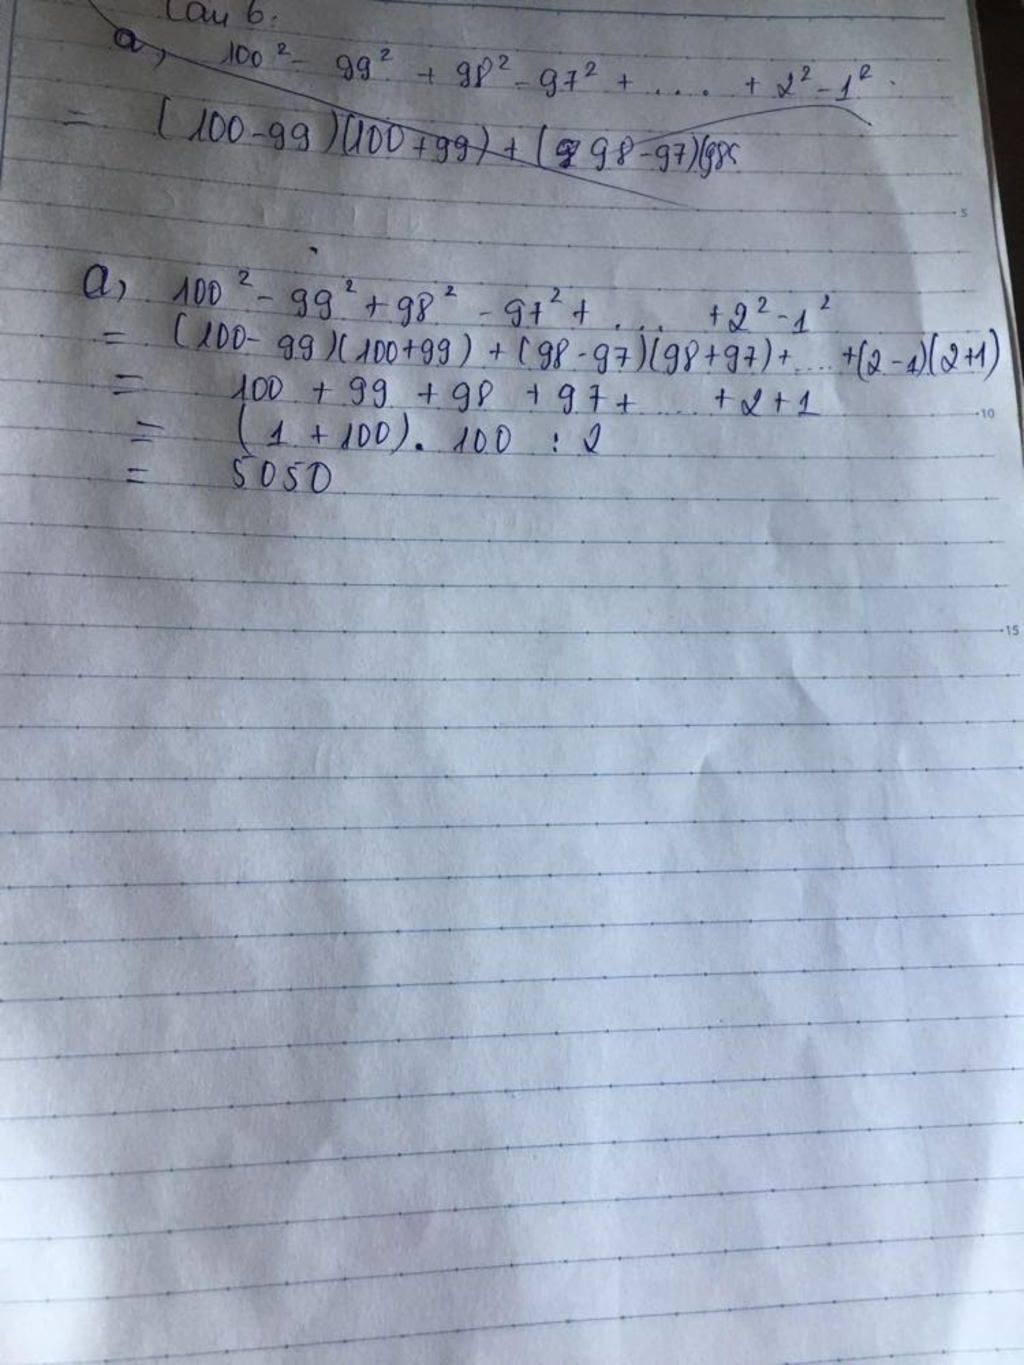 Câu 6:
a, 100² - 99² + 98² - 97² + .... + 2² - 1²
= (100 - 99)(100 + 99) + (98 - 97)(98
5
a, 100² - 99² + 98² - 97² + .... + 2² - 1²
= (100 - 99)(100 + 99) + (98 - 97)(98 + 97) + .... + (2 - 1)(2 + 1)
= 100 + 99 + 98 + 97 + .... + 2 + 1
10
= (1 + 100) . 100 : 2
= 5050
15